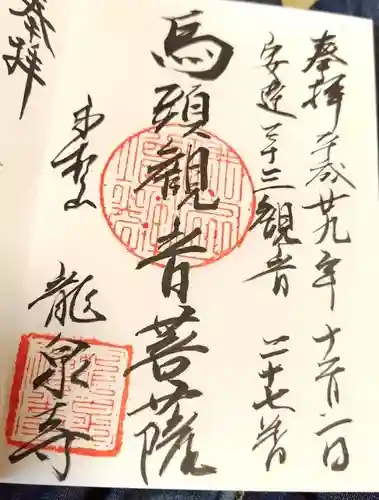 奉拝 平成廿九年十一月二日
安達三十三観音 二十七番
馬頭観音菩薩
龍泉寺
奉拝